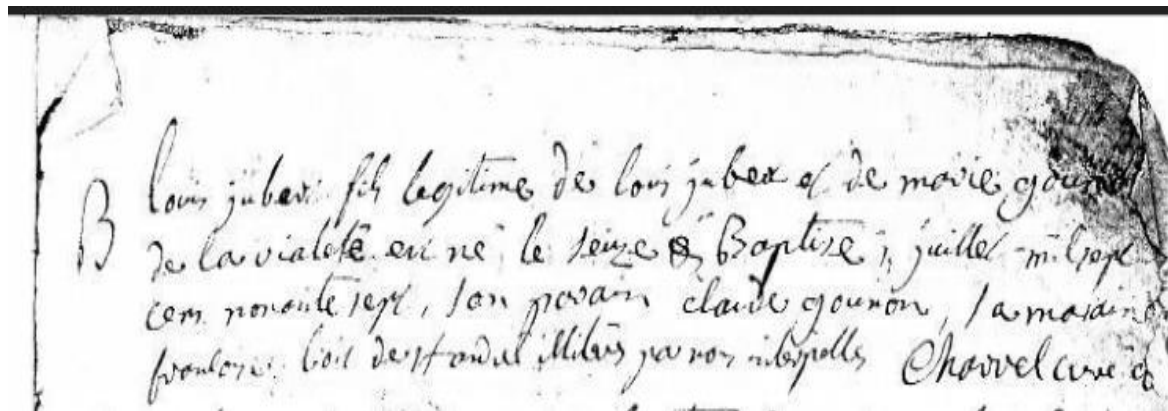 B
louis jubert fils legitime de louis jubert et de marie gounon
de la vialete est né le seize & Baptisé juillet mil sept
cent nonante sept, son parain claude gounon, sa maraine
francoise illiterés par nous interpellés Charvel curé